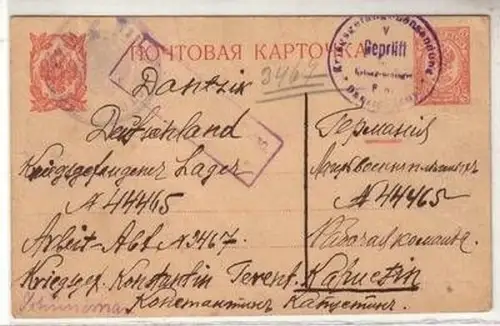 ПОЧТОВАЯ КАРТОЧКА
3467
Kriegsgefangenensendung
Geprüft
Dantzik
Deutschland
Германія
Kriegsgefangener Lager
№ 44465
№ 44465
Arbeit-Abt №3467.
Рабочая команда.
Kriegsgef. Konstantin Terent. Kapustin
Константинъ Капустинъ.